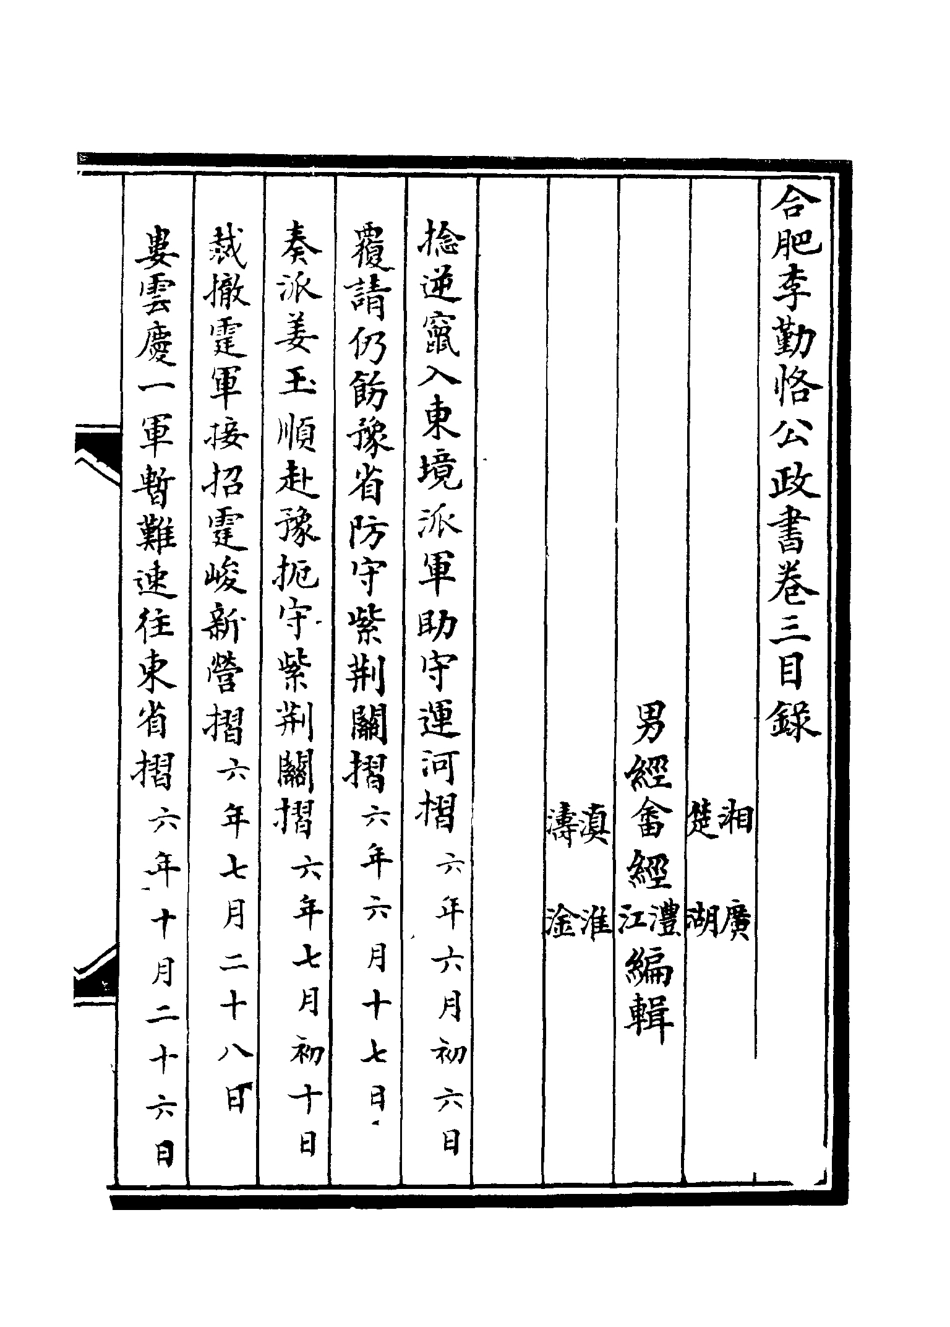 合肥李勤恪公政書卷三目錄
湘 廣
楚 湖
男經畬經灃江編輯
滇 淮
濤 淦
捻逆竄入東境派軍助守運河摺六年六月初六日
覆請仍飭豫省防守紫荆關摺六年六月十七日
奏派姜玉順赴豫扼守紫荆關摺六年七月初十日
裁撤霆軍接招霆峻新營摺六年七月二十八日
婁雲慶一軍暫難速往東省摺六年十月二十六日